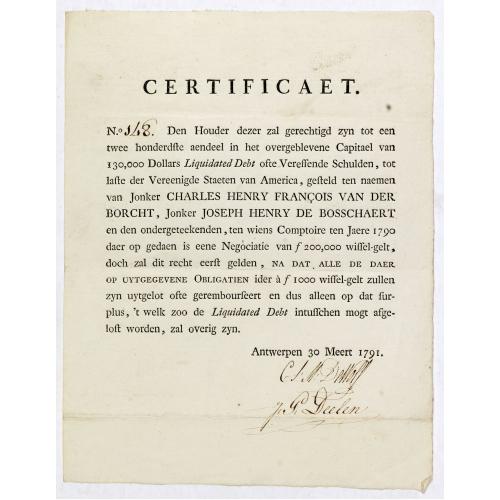 CERTIFICAET.
N.o 148. Den Houder dezer zal gerechtigd zyn tot een
twee honderdste aendeel in het overgeblevene Capitael van
130,000 Dollars Liquidated Debt ofte Vereffende Schulden, tot
laste der Vereenigde Staeten van America, gesteld ten naemen
van Jonker CHARLES HENRY FRANÇOIS VAN DER
BORCHT, Jonker JOSEPH HENRY DE BOSSCHAERT
en den ondergeteekenden, ten wiens Comptoire ten Jaere 1790
daer op gedaen is eene Negóciatie van ƒ 200,000 wissel-gelt,
doch zal dit recht eerst gelden, NA DAT ALLE DE DAER
OP UYTGEGEVENE OBLIGATIEN ider à ƒ 1000 wissel-gelt zullen
zyn uytgelot ofte geremboursseert en dus alleen op dat sur-
plus, 't welk zoo de Liquidated Debt intusschen mogt afge-
lost worden, zal overig zyn.
Antwerpen 30 Meert 1791.
DeWolf
J. G. Deelen